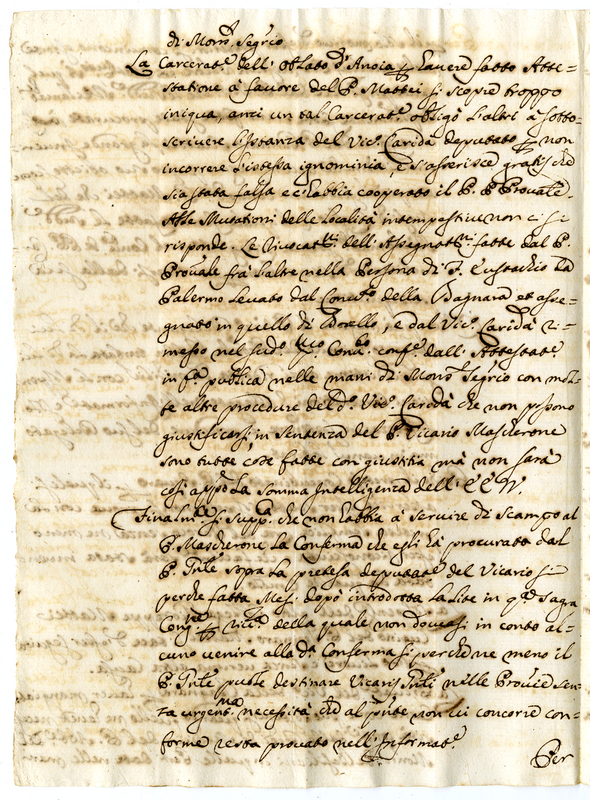 di Mons.r Segrio
La Carcerat.e dell' oblato d'Anoia p havere fatto Atte=
statione à favore del P. Mattei si scopre troppo
iniqua, anzi un tal Carcerat.e obligò l'altri à sotto
scrivere l'istanza del Vic.o Caridà deputato p non
incorrere l'istessa ignominia, e s'asserisce gratis che
sia stata falsa e c'habbia cooperato il P. Provale.
Alle Mutationi delle Località intempestiue non ci si
risponde. Le Revocat.ni dell' Assegnat.ni fatte dal P.
Provale frà l'altre nella Persona di F. Eustachio da
Palermo levato dal Conv.to della Bagnara et asse=
gnato in quello di Borello, e dal Vic.o Caridà ri=
messo nel sud.o Conv.to conf.e dall' Attestat.e
in f.a publica nelle mani di Mons.r Segrio con mol=
te altre procedure del d.o Vic.o Caridà che non possono
giustificarsi in Sentenza del P. Vicario Mascherone
sono tutte cose fatte con giustitia mà non sarà
così app.o la somma Intelligenza dell' EE VV.
Finalm.te si supp.ca che non habbia à servire di scampo al
P. Mascherone la Conferma che egli hà procurata dal
P. Gn̄le sopra la pretesa deputat.e del Vicario si
perche fatta Mesi dopò introdotta la Lite in q.a Sagra
Cong.ne p riv.a della quale non dovea si in conto al=
cuno venire alla d.a Conferma si perche ne meno il
P. Gn̄le puole destinare Vicarij Gn̄li nelle Provincie sen=
za urgent.ma necessità che al pn̄te non vi concorre con=
forme resta provato nell' Informat.e
Per